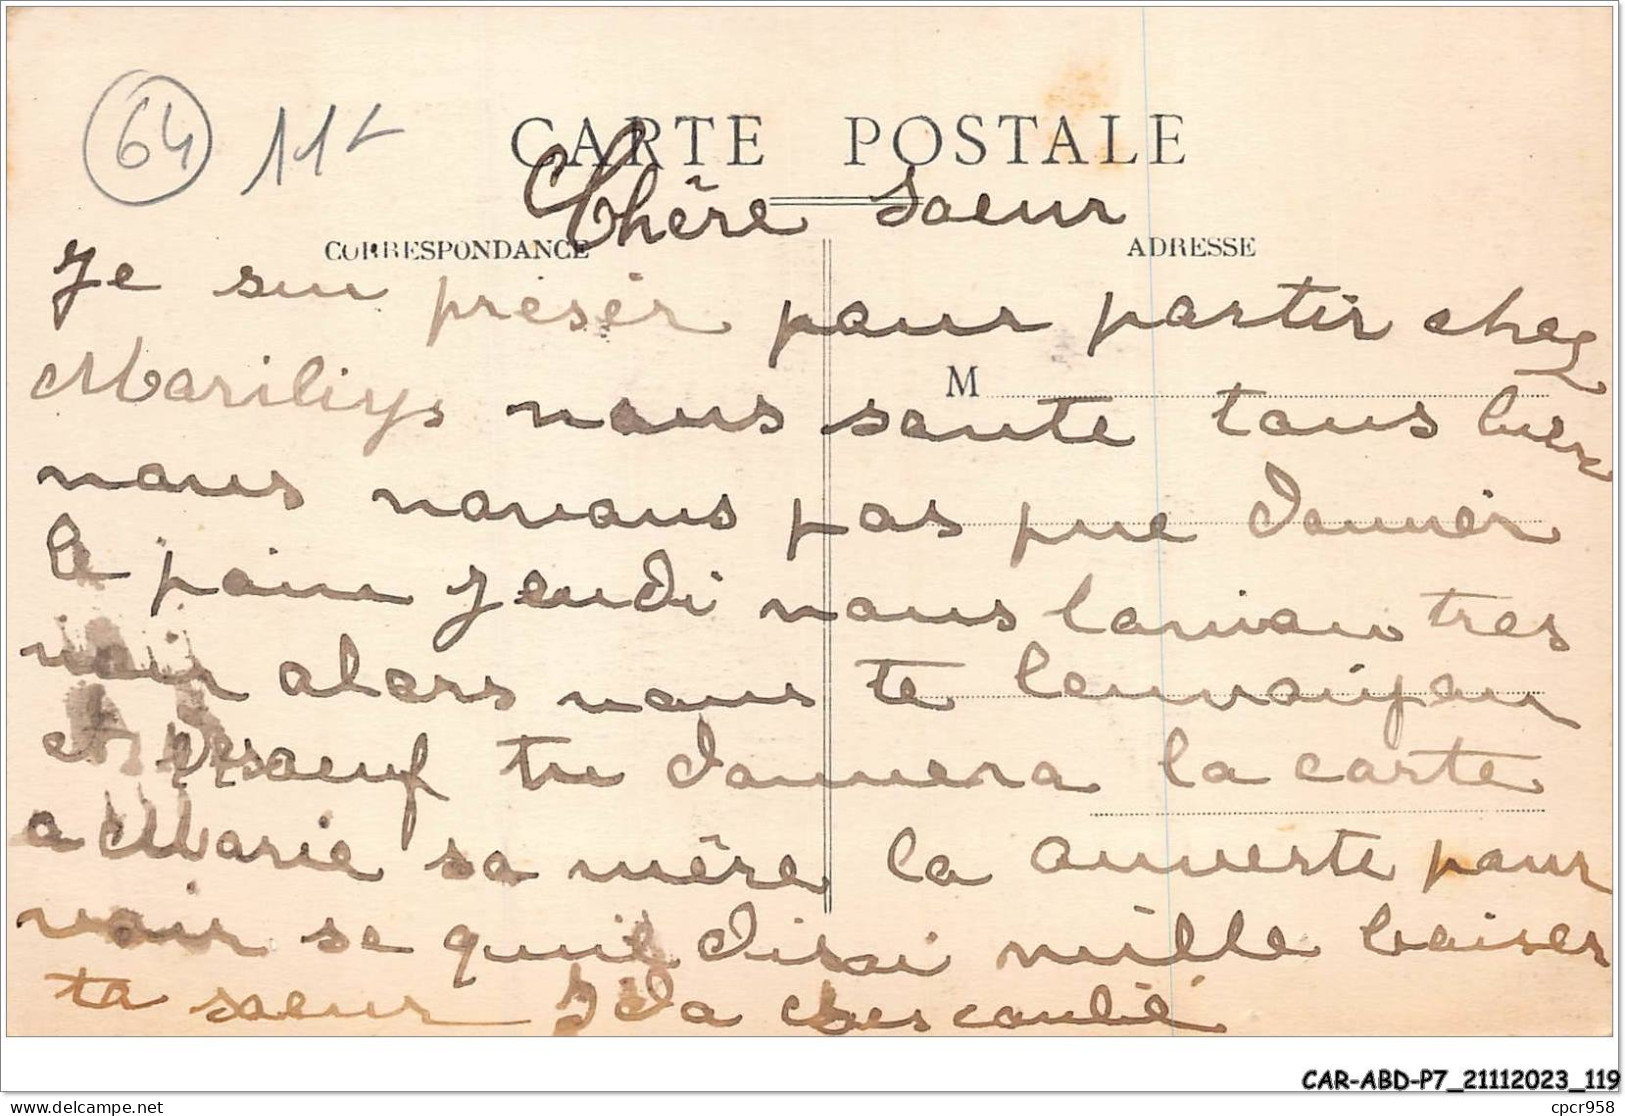 64 11
CARTE POSTALE
Chère soeur
CORRESPONDANCE
ADRESSE
Je sui présér pour partir chez
M
Mariliys nous sonte tous bien
nous navons pas pue donnér
le pain jeudi nous lanvion tres
noir alors nous te lenvoiyon
et tu donnera la carte
a Marie sa mère la ouverte pour
voir se quil dissi mille baiser
ta soeur Ida
CAR-ABD-P7_21112023_119
delcampe.net
cpcr958